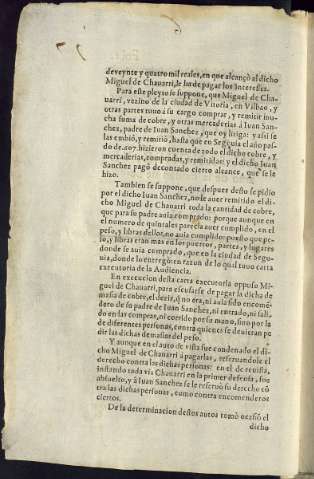 deveynte y quatro mil reales, en que alcançò al dicho
Miguel de Chauarri, le ha de pagar los intereses.
Para este pleyto se suppone, que Miguel de Cha-
uarri, vezino de la ciudad de Vitoria, en Vilbao, y
otras partes tomò a su cargo comprar, y remitir mu-
cha suma de cobre, y otras mercaderias à Iuan San-
chez, padre de Iuan Sanchez, que oy litiga: y assi se
las embiò, y remitiò, hasta que en Segouia el año pas-
do de .607. hizieron cuenta de todo el dicho cobre, y
mercaderias, compradas, y remitidas: y el dicho Iuan
Sanchez pagò decontado cierto alcance, que se le
hizo.
Tambien se suppone, que despues desto se pidio
por el dicho Iuan Sanchez, no se auer remitido el di-
cho Miguel de Chauarri toda la cantidad de cobre,
que para su padre auia comprado: porque aunque en
el numero de quintales parecia auer cumplido, en el
peso, y libras dellos, no auia cumplido: porque que pe-
so, y libras eran mas en los puertos, partes, y lugares
donde se auia comprado, que en la ciudad de Sego-
uia, donde lo entregò: en razon de lo qual tuuo carta
executoria de la Audiencia.
En execucion desta carta executoria oppuso Mi-
guel de Chauarri, para escusarse de pagar la dicha de
masia de cobre, el dezir, q̃ no era, ni auia sido encomẽ-
dero de su padre de Iuan Sanchez, ni entrado, ni sali-
do en las compras, ni corrido por su mano, sino por la
de diferentes personas, contra quien se deuieren pe-
dir las dichas demasias del peso.
Y aunque en el auto de vista fue condenado el di-
cho Miguel de Chauarri à pagarlas, reseruandole el
derecho contra las dichas personas: en el de reuista,
instando toda via Chauarri en la primer defensa, fue
absuelto, y à Iuan Sanchez se le reseruò su derecho cõ
tra las dichas personas, como contra encomenderos
ciertos.
De la determinacion destos autos tomò ocasiõ el
dicho